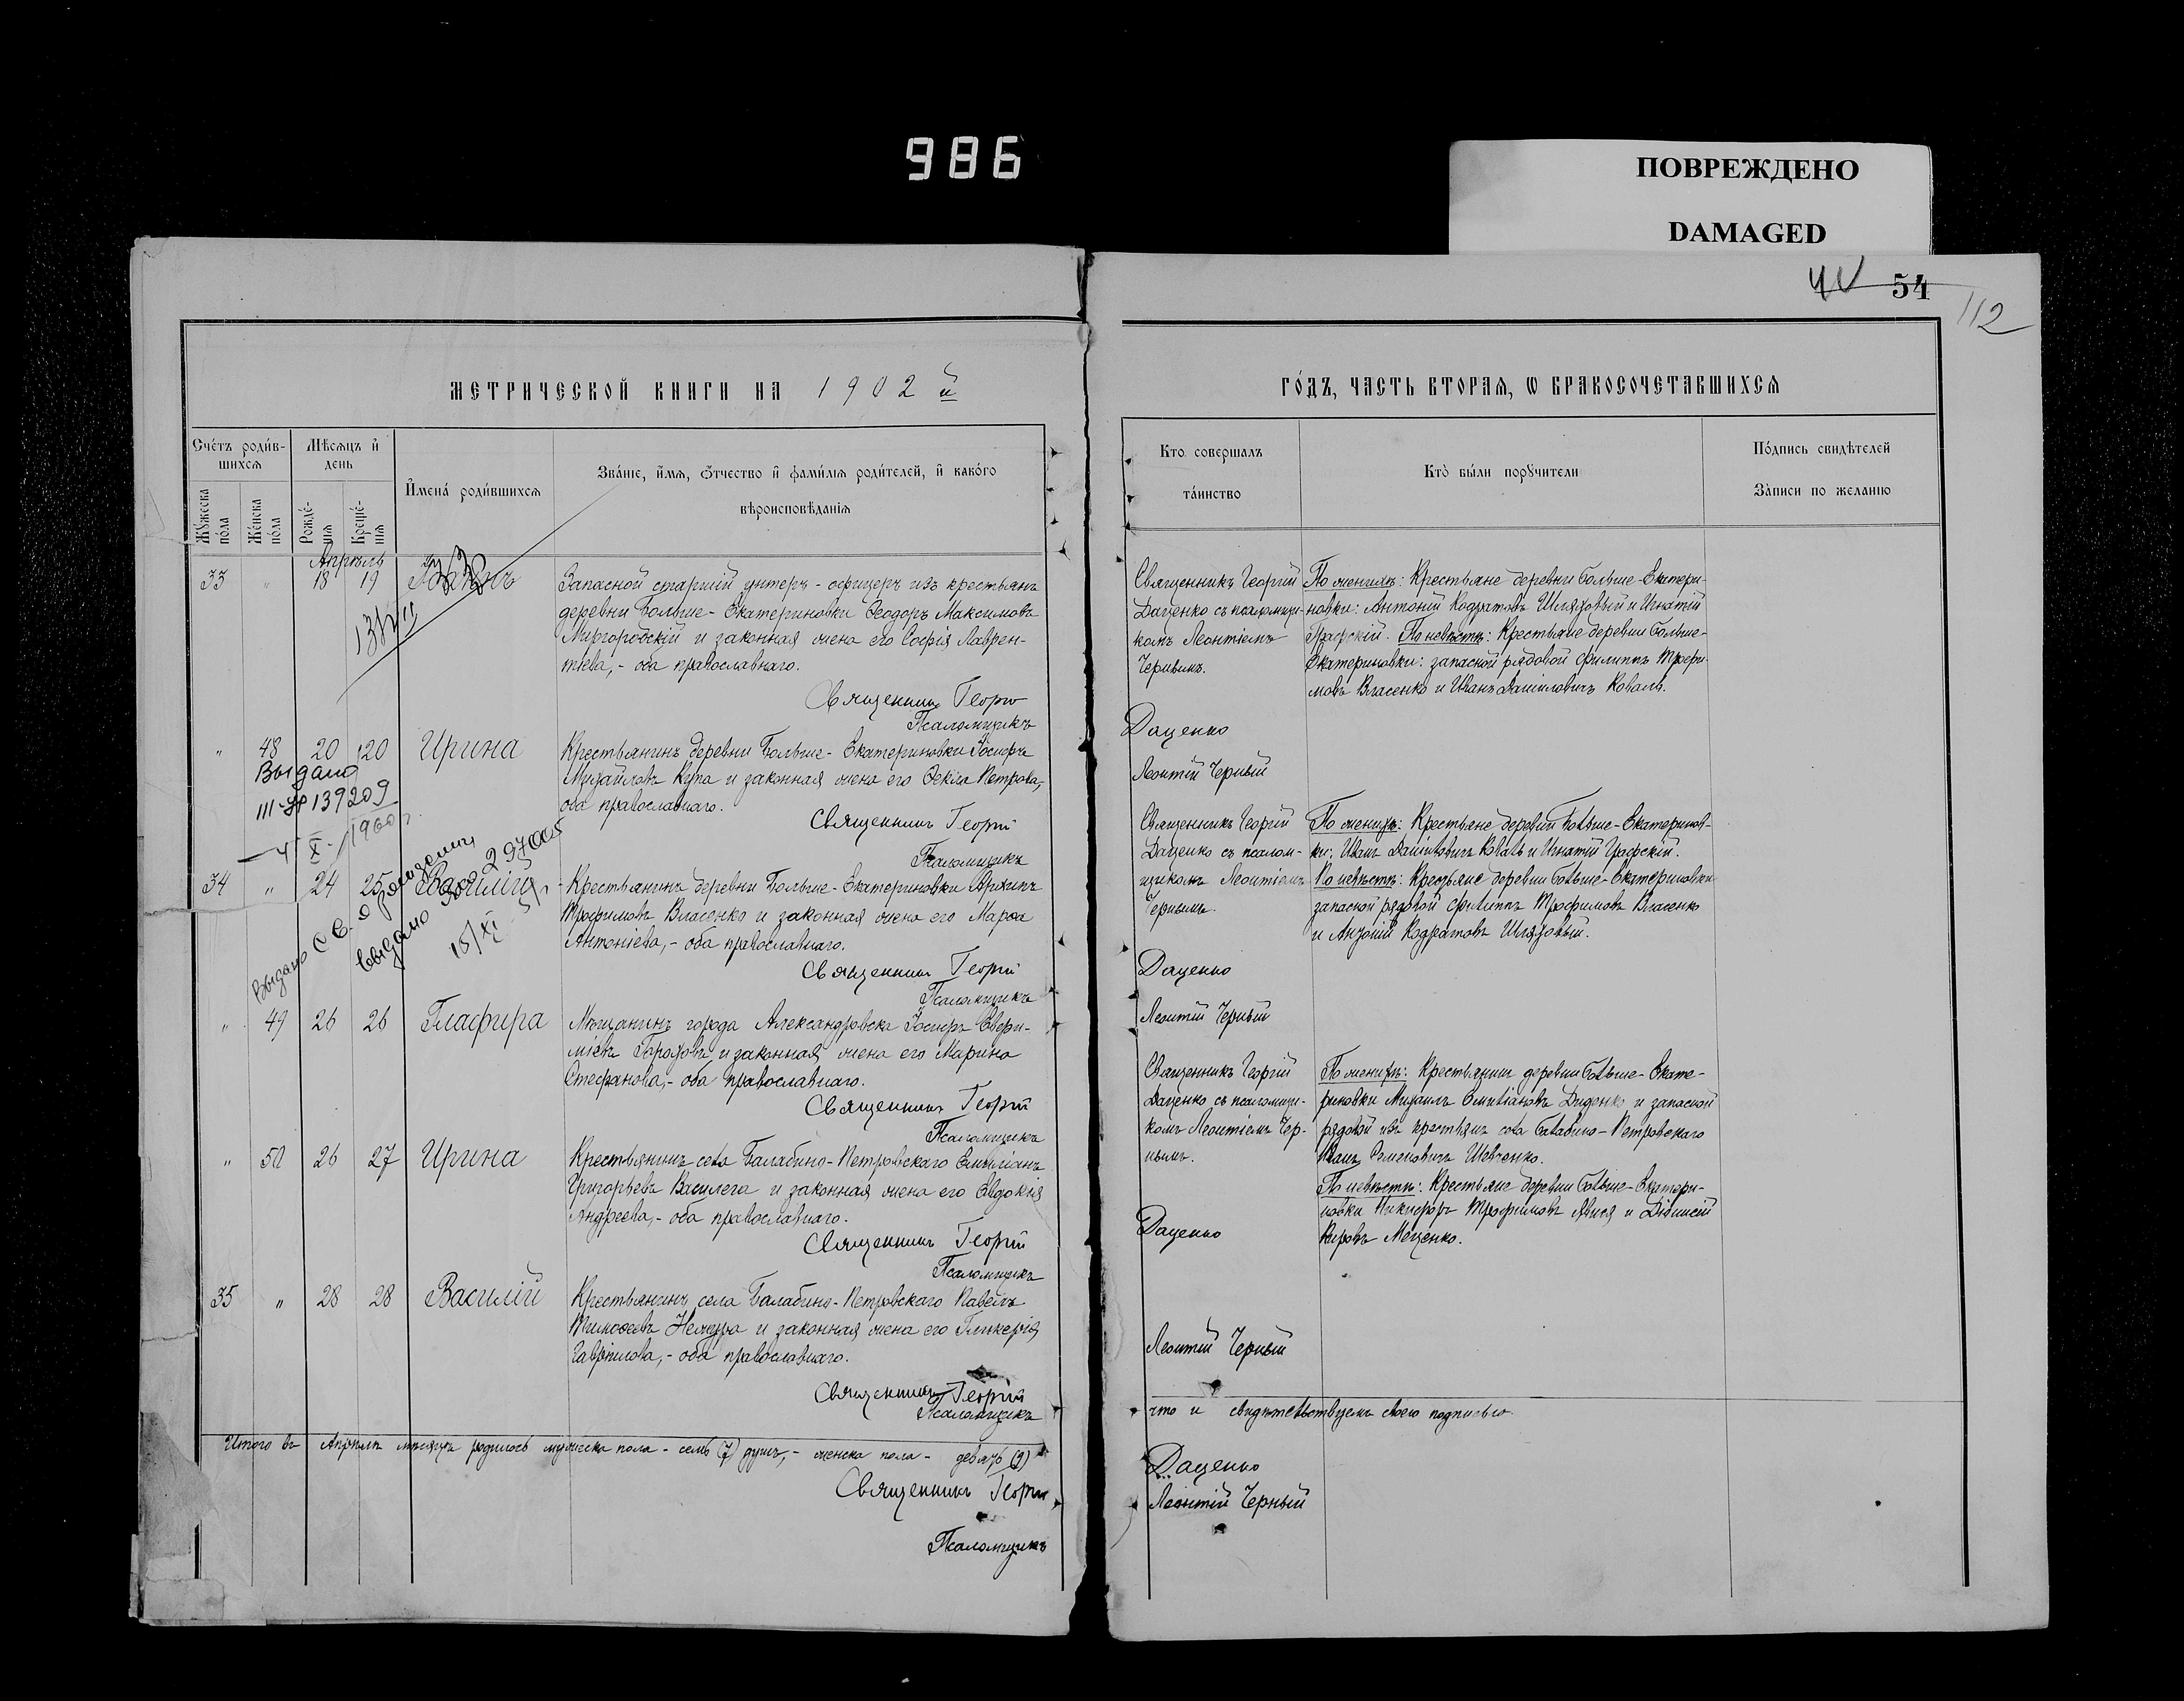 986
ПОВРЕЖДЕНО
DAMAGED
54
112
МЕТРИЧЕСКОЙ КНИГИ НА 1902 й
Счетъ родив-
шихся
Мѣсяцъ и
день
Мужеска
пола
Женска
пола
Рожде-
нія
Креще-
нія
Имена родившихся
Званіе, имя, отчество и фамилія родителей, и какого
вѣроисповѣданія
Апрѣль
33 " 18 19
Запасной старшій унтеръ-офицеръ изъ крестьянъ
деревни Больше-Екатериновки Ѳеодоръ Максимовъ
Миргородскій и законная жена его Софія Лаврен-
тіева,- оба православнаго.
Священникъ Георгій
Псаломщикъ
" 48 20 20 Ирина
Крестьянинъ деревни Больше-Екатериновки Іосифъ
Михайловъ Купа и законная жена его Ѳекла Петрова,
оба православнаго.
Выдано
139209
X 1960 г.
Священникъ Георгій
Псаломщикъ
34 " 24 25 Василій
Крестьянинъ деревни Больше-Екатериновки Архипъ
Трофимовъ Власенко и законная жена его Марѳа
Антоніева,- оба православнаго.
Выдано св. о рождении
выдано
18/XI
Священникъ Георгій
Псаломщикъ
" 49 26 26 Глафира
Мѣщанинъ города Александровска Іосифъ Евфи-
міевъ Гороховъ и законная жена его Марина
Стефанова,- оба православнаго.
Священникъ Георгій
Псаломщикъ
" 50 26 27 Ирина
Крестьянинъ села Балабино-Петровскаго Емиліанъ
Григорьевъ Василега и законная жена его Евдокія
Андреева,- оба православнаго.
Священникъ Георгій
Псаломщикъ
35 " 28 28 Василій
Крестьянинъ села Балабино-Петровскаго Павелъ
Тимоѳеевъ и законная жена его Гликерія
Гавріилова,- оба православнаго.
Священникъ Георгій
Псаломщикъ
Итого въ Апрѣлѣ мѣсяцѣ родилось мужеска пола - семь (7) душъ,- женска пола - девять (9)
Священникъ Георгій
Псаломщикъ
ГОДЪ, ЧАСТЬ ВТОРАЯ, Ѡ БРАКОСОЧЕТАВШИХСЯ
Кто совершалъ
таинство
Кто были поручители
Подпись свидѣтелей
записи по желанію
Священникъ Георгій
Даценко съ псаломщи-
комъ Леонтіемъ
Чернымъ.
По женихѣ: Крестьяне деревни Больше-Екатери-
новки: Антоній Кодратовъ Шляховый и Игнатій
Графскій. По невѣстѣ: Крестьяне деревни Больше-
Екатериновки: запасной рядовой Филиппъ Трофи-
мовъ Власенко и Иванъ Даниловичъ Коваль.
Даценко
Леонтій Черный
Священникъ Георгій
Даценко съ псалом-
щикомъ Леонтіемъ
Чернымъ.
По женихѣ: Крестьяне деревни Больше-Екатеринов-
ки: Иванъ Даниловичъ Коваль и Игнатій Графскій.
По невѣстѣ: Крестьяне деревни Больше-Екатериновки
запасной рядовой Филиппъ Трофимовъ Власенко
и Антоній Кодратовъ Шляховый.
Даценко
Леонтій Черный
Священникъ Георгій
Даценко съ псаломщи-
комъ Леонтіемъ Чер-
нымъ.
По женихѣ: Крестьянинъ деревни Больше-Екате-
риновки Михаилъ Емиліановъ Диденко и запасной
рядовой изъ крестьянъ села Балабино-Петровскаго
Иванъ Семеновичъ Шевченко.
По невѣстѣ: Крестьяне деревни Больше-Екатери-
новки Никифоръ Трофимовъ и Діонисій
Кировъ Маценко.
Даценко
Леонтій Черный
что и свидѣтельствуемъ своею подписью
Даценко
Леонтій Черный